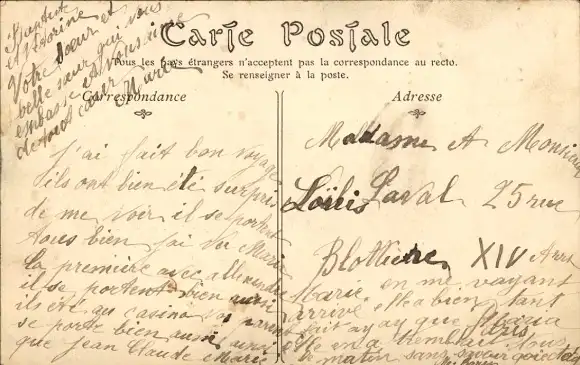 Carte Postale
Tous les pays étrangers n'acceptent pas la correspondance au recto.
Se renseigner à la poste.
Correspondance
Adresse
et
Votre Sœur et
belle sœur qui vous
embrasse
de tout cœur Marie
J'ai fait bon voyage
ils ont bien été surpri
de me voir il se portent
tous bien j'ai vu Marie
la première avec
il se portent bien aussi
ils été au casino
se porte bien aussi ainsi
que Jean Claude Marie
Madame et Monsieur
Loüis Laval 25 rue
Blottiere XIV Arr
Marie en me voyant
arrivé elle a bien tant
fait que Maria
elle en a tremblait tous
le matin sans savoir